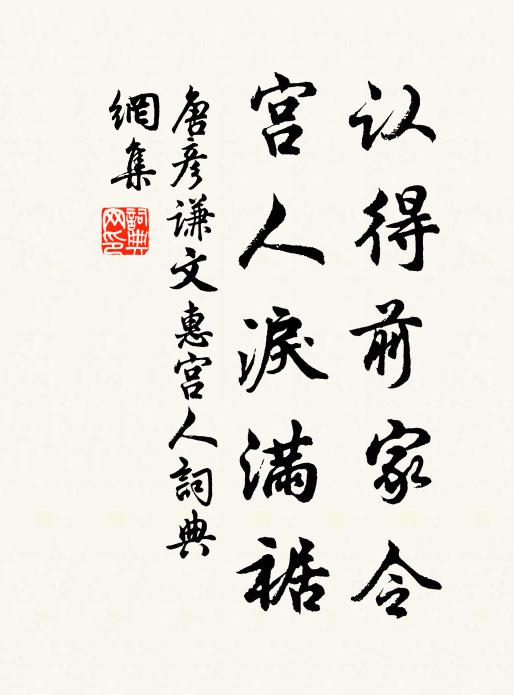 认得前家令
宫人淚满裾
唐彦谦文惠宫人詞典
網集
詞典
网印